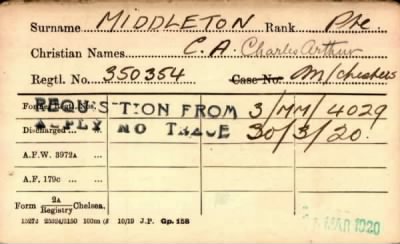 Surname MIDDLETON Rank Pte.
Christian Names C. A. Charles Arthur
Regtl. No. 350354 Case No. M/chesters
REQUISITION FROM 3/MM/4029
Discharged REPLY NO TRACE 30/3/20.
A.F.W. 3972A
A.F. 179C
Form 2A/Registry Chelsea,
10/19 J.P. Gp. 158
MAR 1920